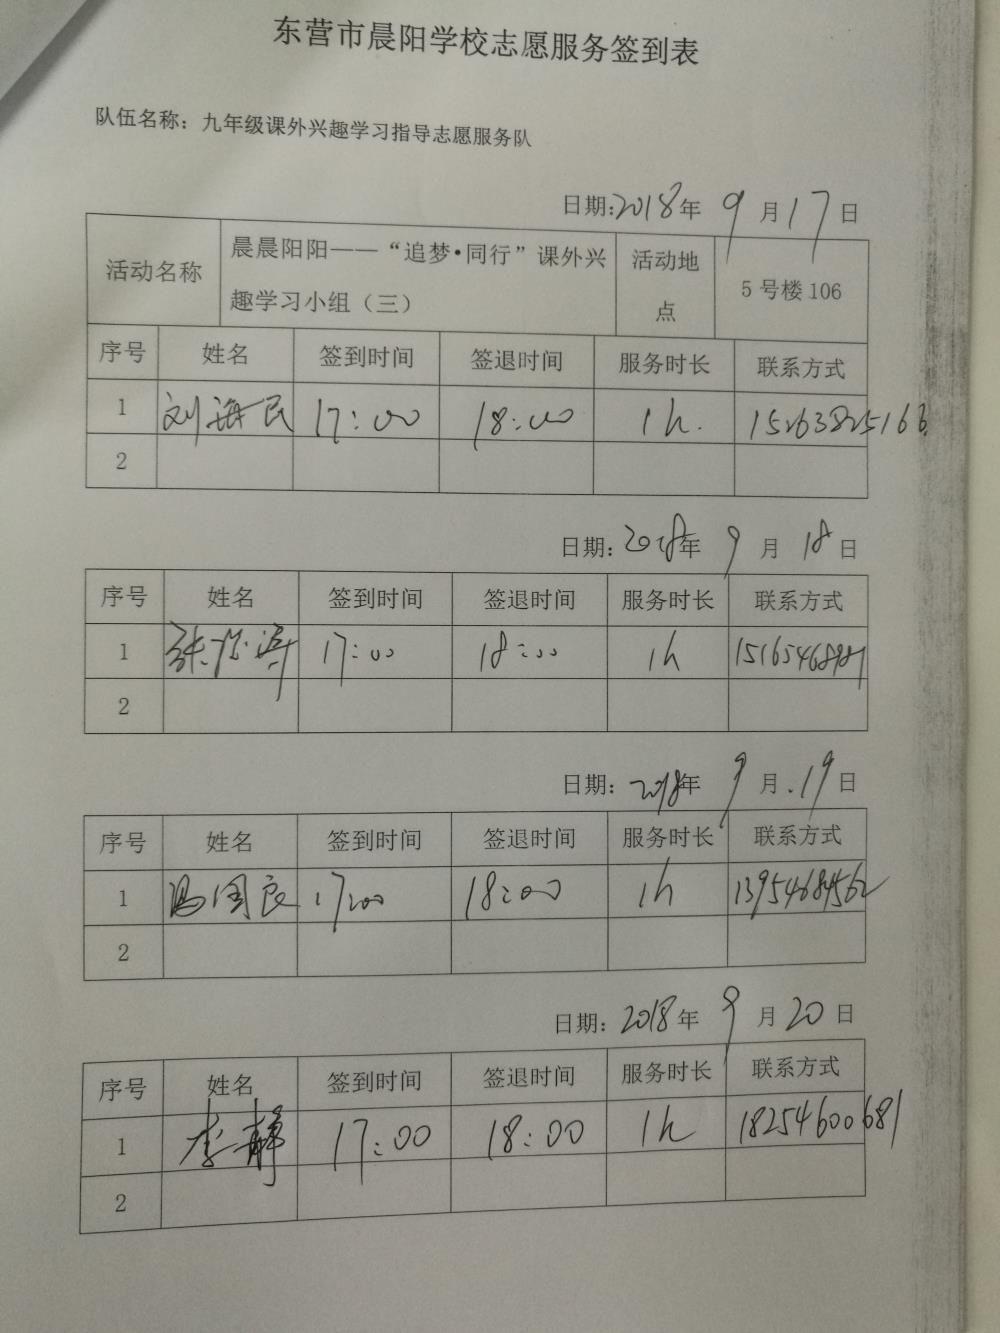 东营市晨阳学校志愿服务签到表
队伍名称：九年级课外兴趣学习指导志愿服务队
日期:2018年 9 月 17 日
活动名称 晨晨阳阳——“追梦•同行”课外兴趣学习小组（三） 活动地点 5 号楼 106
序号 姓名 签到时间 签退时间 服务时长 联系方式
1 刘海民 17:00 18:00 1h. 15263825166
2
日期: 2018年 9 月 18 日
序号 姓名 签到时间 签退时间 服务时长 联系方式
1 张 17:00 18:00 1h
2
日期: 2018年 9 月 19 日
序号 姓名 签到时间 签退时间 服务时长 联系方式
1 冯国良 17:00 18:00 1h 13954684562
2
日期: 2018年 9 月 20 日
序号 姓名 签到时间 签退时间 服务时长 联系方式
1 李静 17:00 18:00 1h 18254600681
2